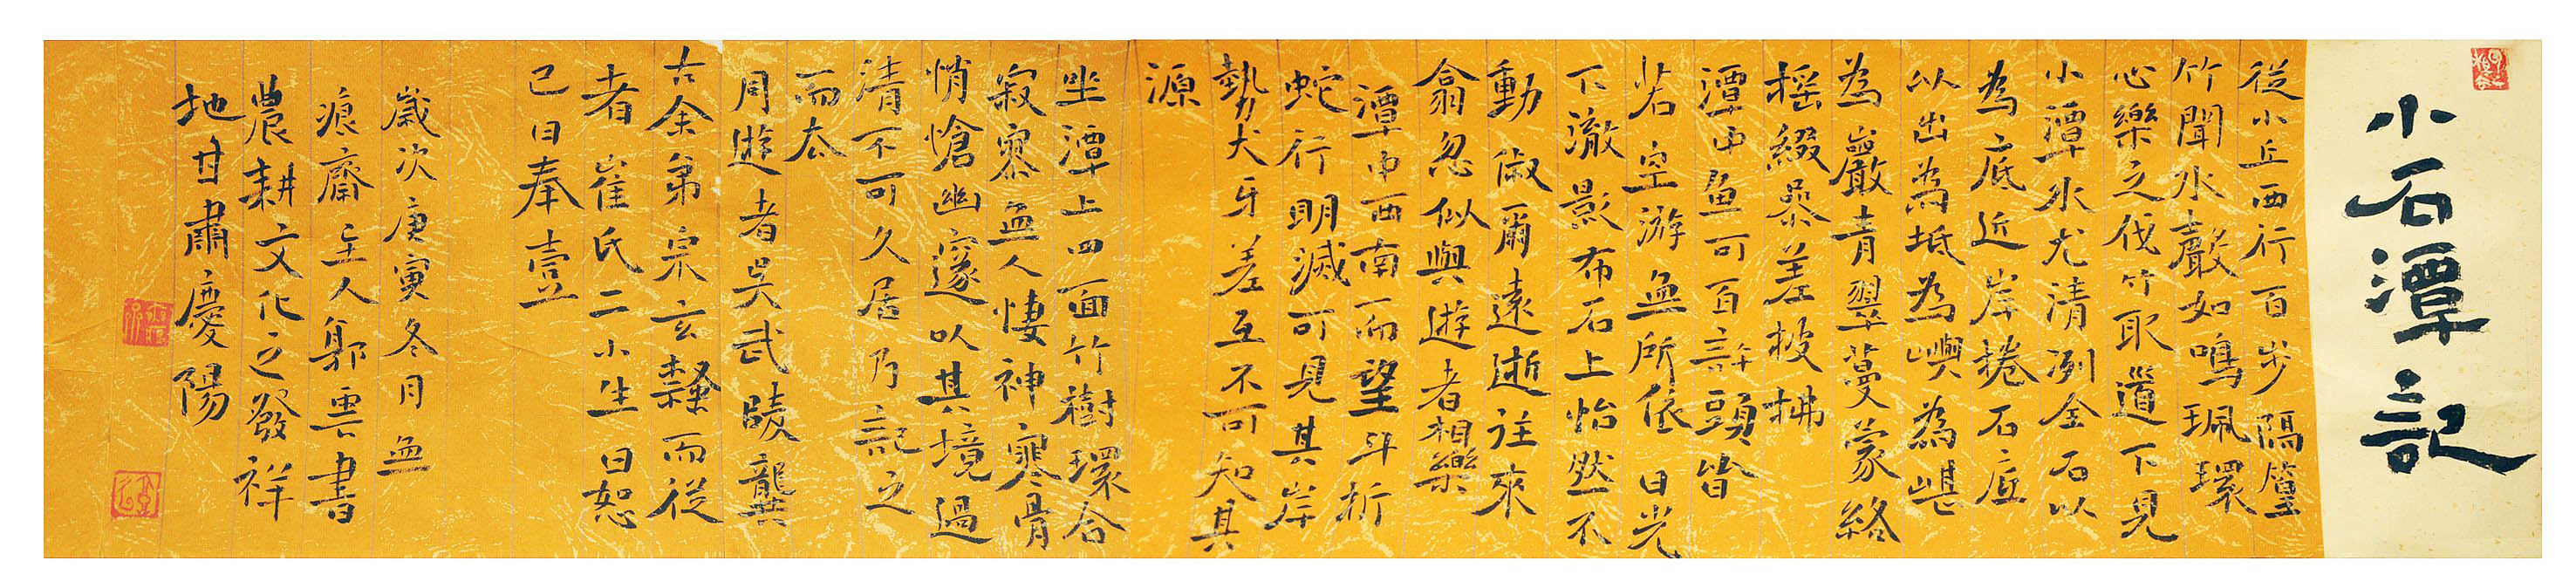 小石潭記
從小丘西行百步隔篁
竹聞水聲如鳴珮環
心樂之伐竹取道下見
小潭水尤清冽全石以
為底近岸捲石底
以出為坻為嶼為嵁
為巖青翠蔓蒙絡
搖綴參差披拂
潭中魚可百許頭皆
若空游無所依日光
下澈影布石上怡然不
動俶爾遠逝往來
翕忽似與遊者相樂
潭中西南而望斗折
蛇行明滅可見其岸
勢犬牙差互不可知其
源
坐潭上四面竹樹環合
寂寥無人悽神寒骨
悄愴幽邃以其境過
清不可久居乃記之
而去
同遊者吳武陵龔
古余弟宗玄隸而從
者崔氏二小生曰恕
己曰奉壹
歲次庚寅冬月無
痕齋主人郭雲書
農耕文化之發祥
地甘肅慶陽